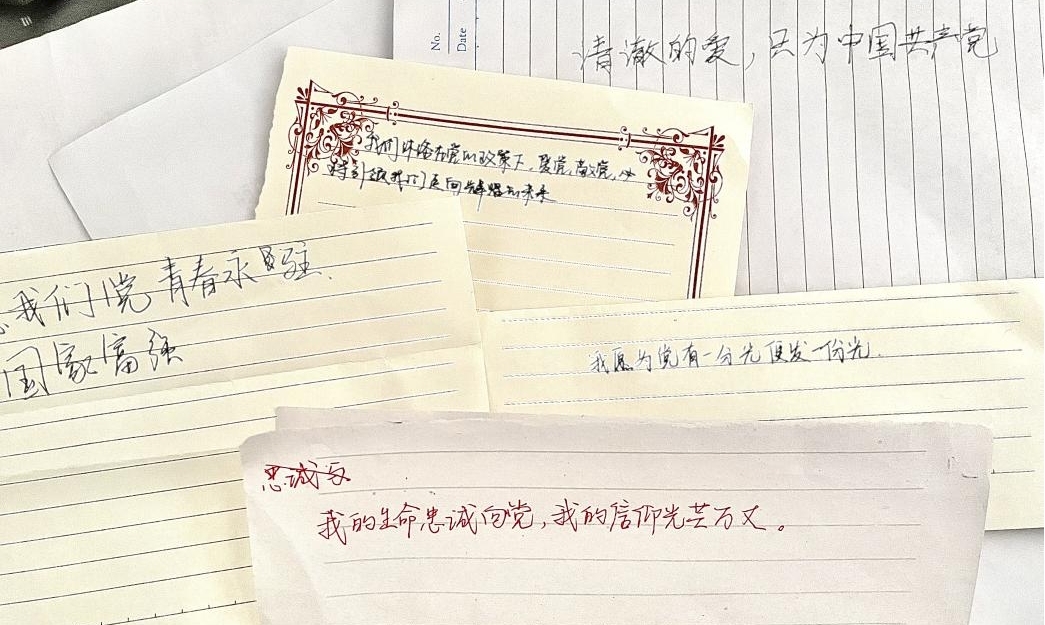 No.
Date
清澈的爱，只为中国共产党
我们沐浴在党的政策下，爱党，敬党，必
将引领我们走向辉煌的未来
我们党青春永驻.
国家富强
我愿为党有一分光便发一份光.
忠诚与
我的生命忠诚向党，我的信仰光芒万丈。